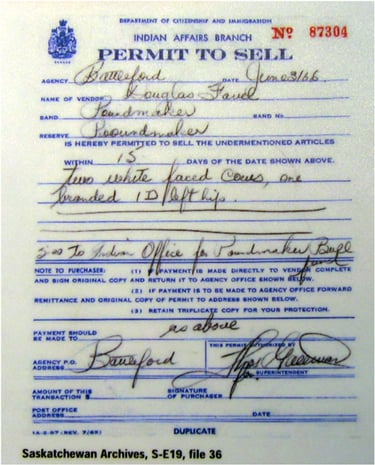 DEPARTMENT OF CITIZENSHIP AND IMMIGRATION
INDIAN AFFAIRS BRANCH
No 87304
PERMIT TO SELL
AGENCY Battleford DATE June 3/66
NAME OF VENDOR Douglas Favel
BAND Poundmaker BAND No
RESERVE Pooundmaker
IS HEREBY PERMITTED TO SELL THE UNDERMENTIONED ARTICLES
WITHIN 15 DAYS OF THE DATE SHOWN ABOVE.
two white faced cows, one
branded ID left hip.
to Indian Office for Poundmaker Bull
fund
NOTE TO PURCHASER: (1) IF PAYMENT IS MADE DIRECTLY TO VENDOR COMPLETE
AND SIGN ORIGINAL AND RETURN IT TO AGENCY OFFICE SHOWN BELOW.
(2) IF PAYMENT IS TO BE MADE TO AGENCY OFFICE FORWARD
REMITTANCE AND ORIGINAL COPY OF PERMIT TO ADDRESS SHOWN BELOW.
(3) RETAIN TRIPLICATE COPY FOR YOUR PROTECTION.
PAYMENT SHOULD
BE MADE TO as above
AGENCY P.O.
ADDRESS Battleford
THIS PERMIT AUTHORIZED BY
for SUPERINTENDENT
AMOUNT OF THIS
TRANSACTION $
SIGNATURE
OF PURCHASER
POST OFFICE
ADDRESS DATE
DUPLICATE
Saskatchewan Archives, S-E19, file 36